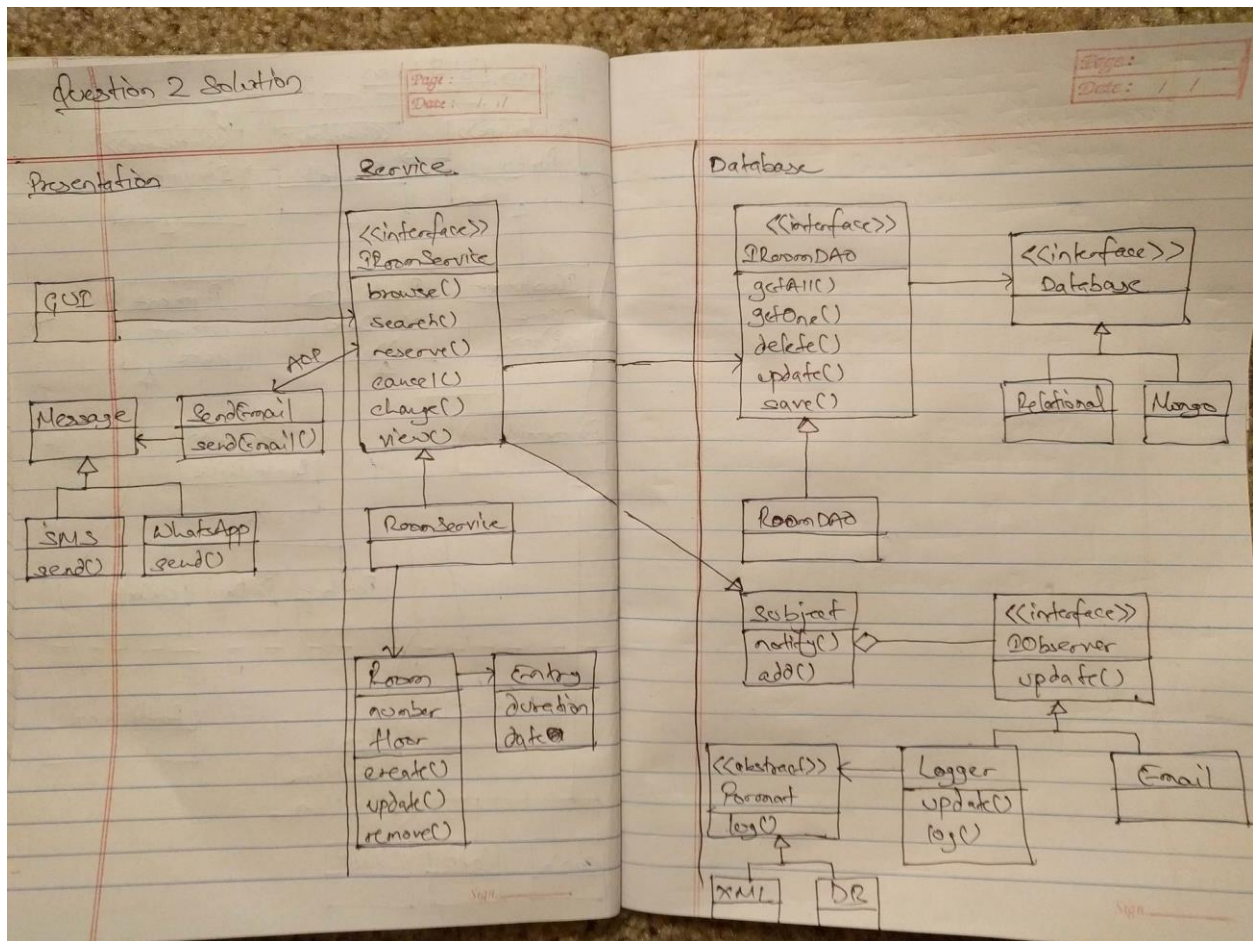 Question 2 Solution
Page:
Date: / /
Page:
Date: / /
Presentation
Service
Database
GUI
Message
SendEmail
sendEmail()
SMS
send()
WhatsApp
send()
AOP
<<interface>>
IRoomService
browse()
search()
reserve()
cancel()
change()
view()
RoomService
Room
number
floor
create()
update()
remove()
Entry
duration
date
<<interface>>
IRoomDAO
getAll()
getOne()
delete()
update()
save()
RoomDAO
<<interface>>
Database
Relational
Mongo
Subject
notify()
add()
<<interface>>
IObserver
update()
<<abstract>>
log()
Logger
update()
log()
Email
XML
Sign
Sign